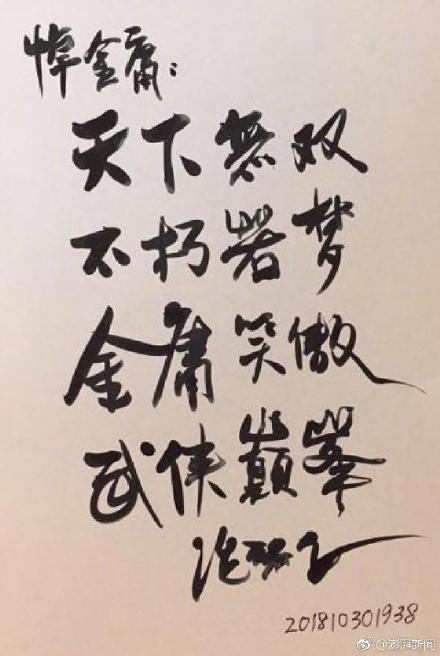 悼金庸：
天下無双
不朽若梦
金庸笑傲
武侠巅峯
201810301938
@澎湃新闻